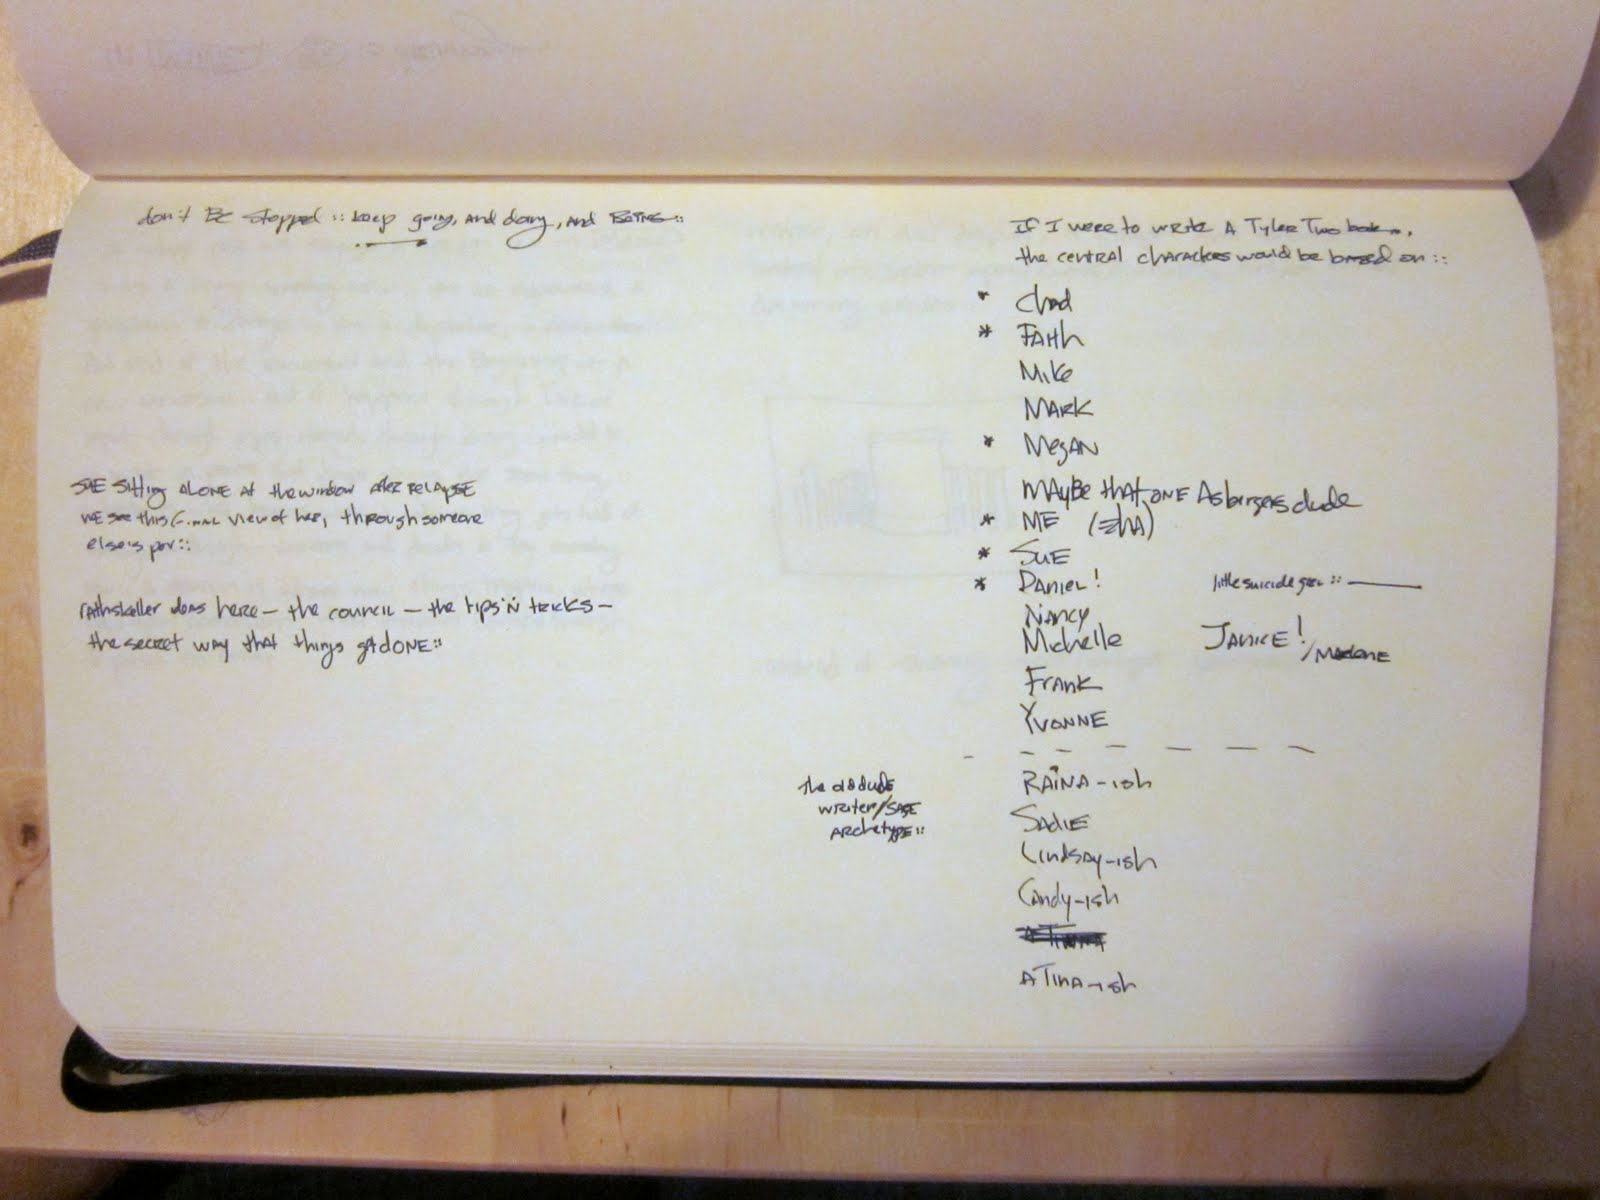 don't BE stopped :: keep going, and doing, and BEING::
SUE sitting ALONE at the window after RELAPSE
WE see this final view of her, through someone
else's pov::
rathskeller ideas here — the council — the tips 'n tricks —
the secret way that things get DONE::
If I were to write A Tyler Two book,
the central characters would be based on ::
* Chad
* FAITH
Mike
MARK
* MEGAN
MAYBE that ONE Asbergers dude
* ME (≡hA)
* SUE
* DANIEL!
little suicide girl ::
NANCY
Michelle
JANICE! /
FRANK
YVONNE
the old dude
writer/SAGE
ARchetype::
RAINA-ish
SADIE
Lindsay-ish
Candy-ish
A TINA-ish